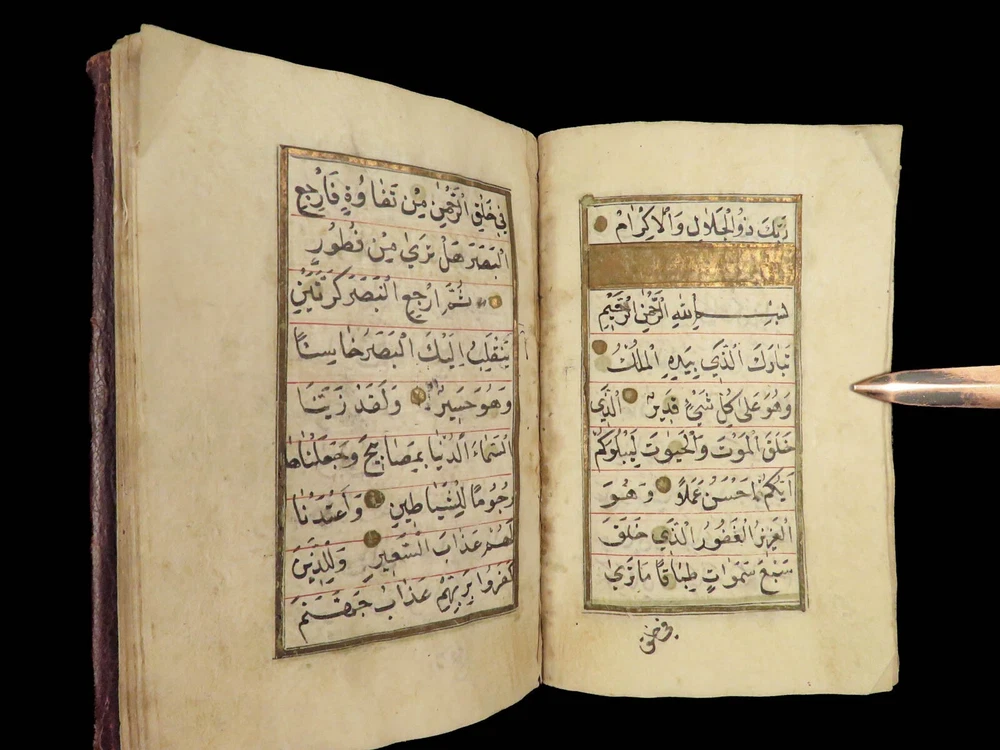 رَبِّكَ ذُو الْجَلَالِ وَالْاِكْرَامِ
بِسْمِ اللّٰهِ الرَّحْمٰنِ الرَّحِيمِ
تَبَارَكَ الَّذِي بِيَدِهِ الْمُلْكُ
وَهُوَ عَلٰى كُلِّ شَيْءٍ قَدِيرٌ الَّذِي
خَلَقَ الْمَوْتَ وَالْحَيٰوتَ لِيَبْلُوَكُمْ
اَيُّكُمْ اَحْسَنُ عَمَلًا وَهُوَ
الْعَزِيزُ الْغَفُورُ الَّذِي خَلَقَ
سَبْعَ سَمٰوَاتٍ طِبَاقًا مَا تَرٰى
فِي خَلْقِ
فِي خَلْقِ الرَّحْمٰنِ مِنْ تَفَاوُتٍ فَارْجِعِ
الْبَصَرَ هَلْ تَرٰى مِنْ فُطُورٍ
ثُمَّ ارْجِعِ الْبَصَرَ كَرَّتَيْنِ
يَنْقَلِبْ اِلَيْكَ الْبَصَرُ خَاسِئًا
وَهُوَ حَسِيرٌ وَلَقَدْ زَيَّنَّا
السَّمَاءَ الدُّنْيَا بِمَصَابِيحَ وَجَعَلْنَاهَا
رُجُومًا لِلشَّيَاطِينِ وَاَعْتَدْنَا
لَهُمْ عَذَابَ السَّعِيرِ وَلِلَّذِينَ
كَفَرُوا بِرَبِّهِمْ عَذَابُ جَهَنَّمَ